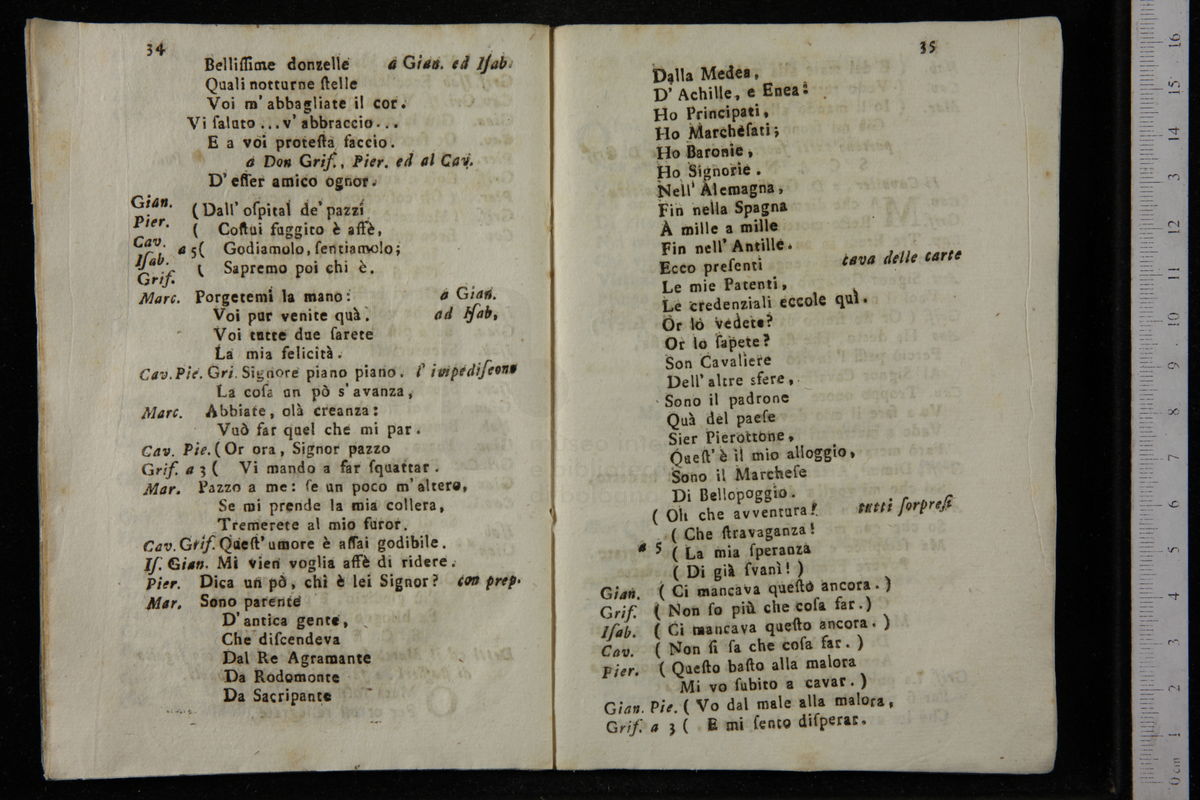 34
Belliſſime donzelle a Gian. ed Iſab.
Quali notturne ſtelle
Voi m' abbagliate il cor.
Vi ſaluto ... v' abbraccio ...
E a voi proteſta faccio.
a Don Grif., Pier. ed al Cav.
D' eſſer amico ognor.
Gian. ( Dall' oſpital de' pazzi
Pier. ( Coſtui fuggito è affè,
Cav. a 5 ( Godiamolo, ſentiamolo;
Iſab. ( Sapremo poi chi è.
Grif.
Marc. Porgetemi la mano: a Gian.
Voi pur venite quà. ad Iſab,
Voi tutte due ſarete
La mia felicità.
Cav. Pie. Gri. Signore piano piano. l' impediſcono
La coſa un pò s' avanza,
Marc. Abbiate, olà creanza:
Vuò far quel che mi par.
Cav. Pie. ( Or ora, Signor pazzo
Grif. a 3 ( Vi mando a far ſquattar.
Mar. Pazzo a me: ſe un poco m' altero,
Se mi prende la mia collera,
Tremerete al mio furor.
Cav. Grif. Queſt' umore è aſſai godibile.
Iſ. Gian. Mi vien voglia affè di ridere.
Pier. Dica un pò, chi è lei Signor? con prep.
Mar. Sono parente
D' antica gente,
Che diſcendeva
Dal Re Agramante
Da Rodomonte
Da Sacripante
35
Dalla Medea,
D' Achille, e Enea:
Ho Principati,
Ho Marcheſati;
Ho Baronie,
Ho Signorie.
Nell' Alemagna,
Fin nella Spagna
A mille a mille
Fin nell' Antille.
Ecco preſenti cava delle carte
Le mie Patenti,
Le credenziali eccole quì.
Or lo vedete?
Or lo ſapete?
Son Cavaliere
Dell' altre sfere,
Sono il padrone
Quà del paeſe
Sier Pierottone,
Queſt' è il mio alloggio,
Sono il Marcheſe
Di Bellopoggio.
( Oh che avventura! tutti ſorpreſi
( Che ſtravaganza!
a 5 ( La mia ſperanza
( Di già ſvanì! )
Gian. ( Ci mancava queſto ancora. )
Grif. ( Non ſo più che coſa far. )
Iſab. ( Ci mancava queſto ancora. )
Cav. ( Non ſi ſa che coſa far. )
Pier. ( Queſto baſto alla malora
Mi vo ſubito a cavar. )
Gian. Pie. ( Vo dal male alla malora,
Grif. a 3 ( E mi ſento diſperar.